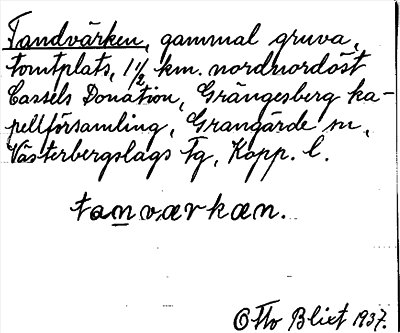 Tandvärken, gammal gruva,
tomtplats, 1 1/2 km. nordnordöst
Cassels Donation, Grängesberg ka-
pellförsamling, Grangärde sn,
Västerbergslags Fg, Kopp. l.
tanværkæn.
Otto Blixt 1937.